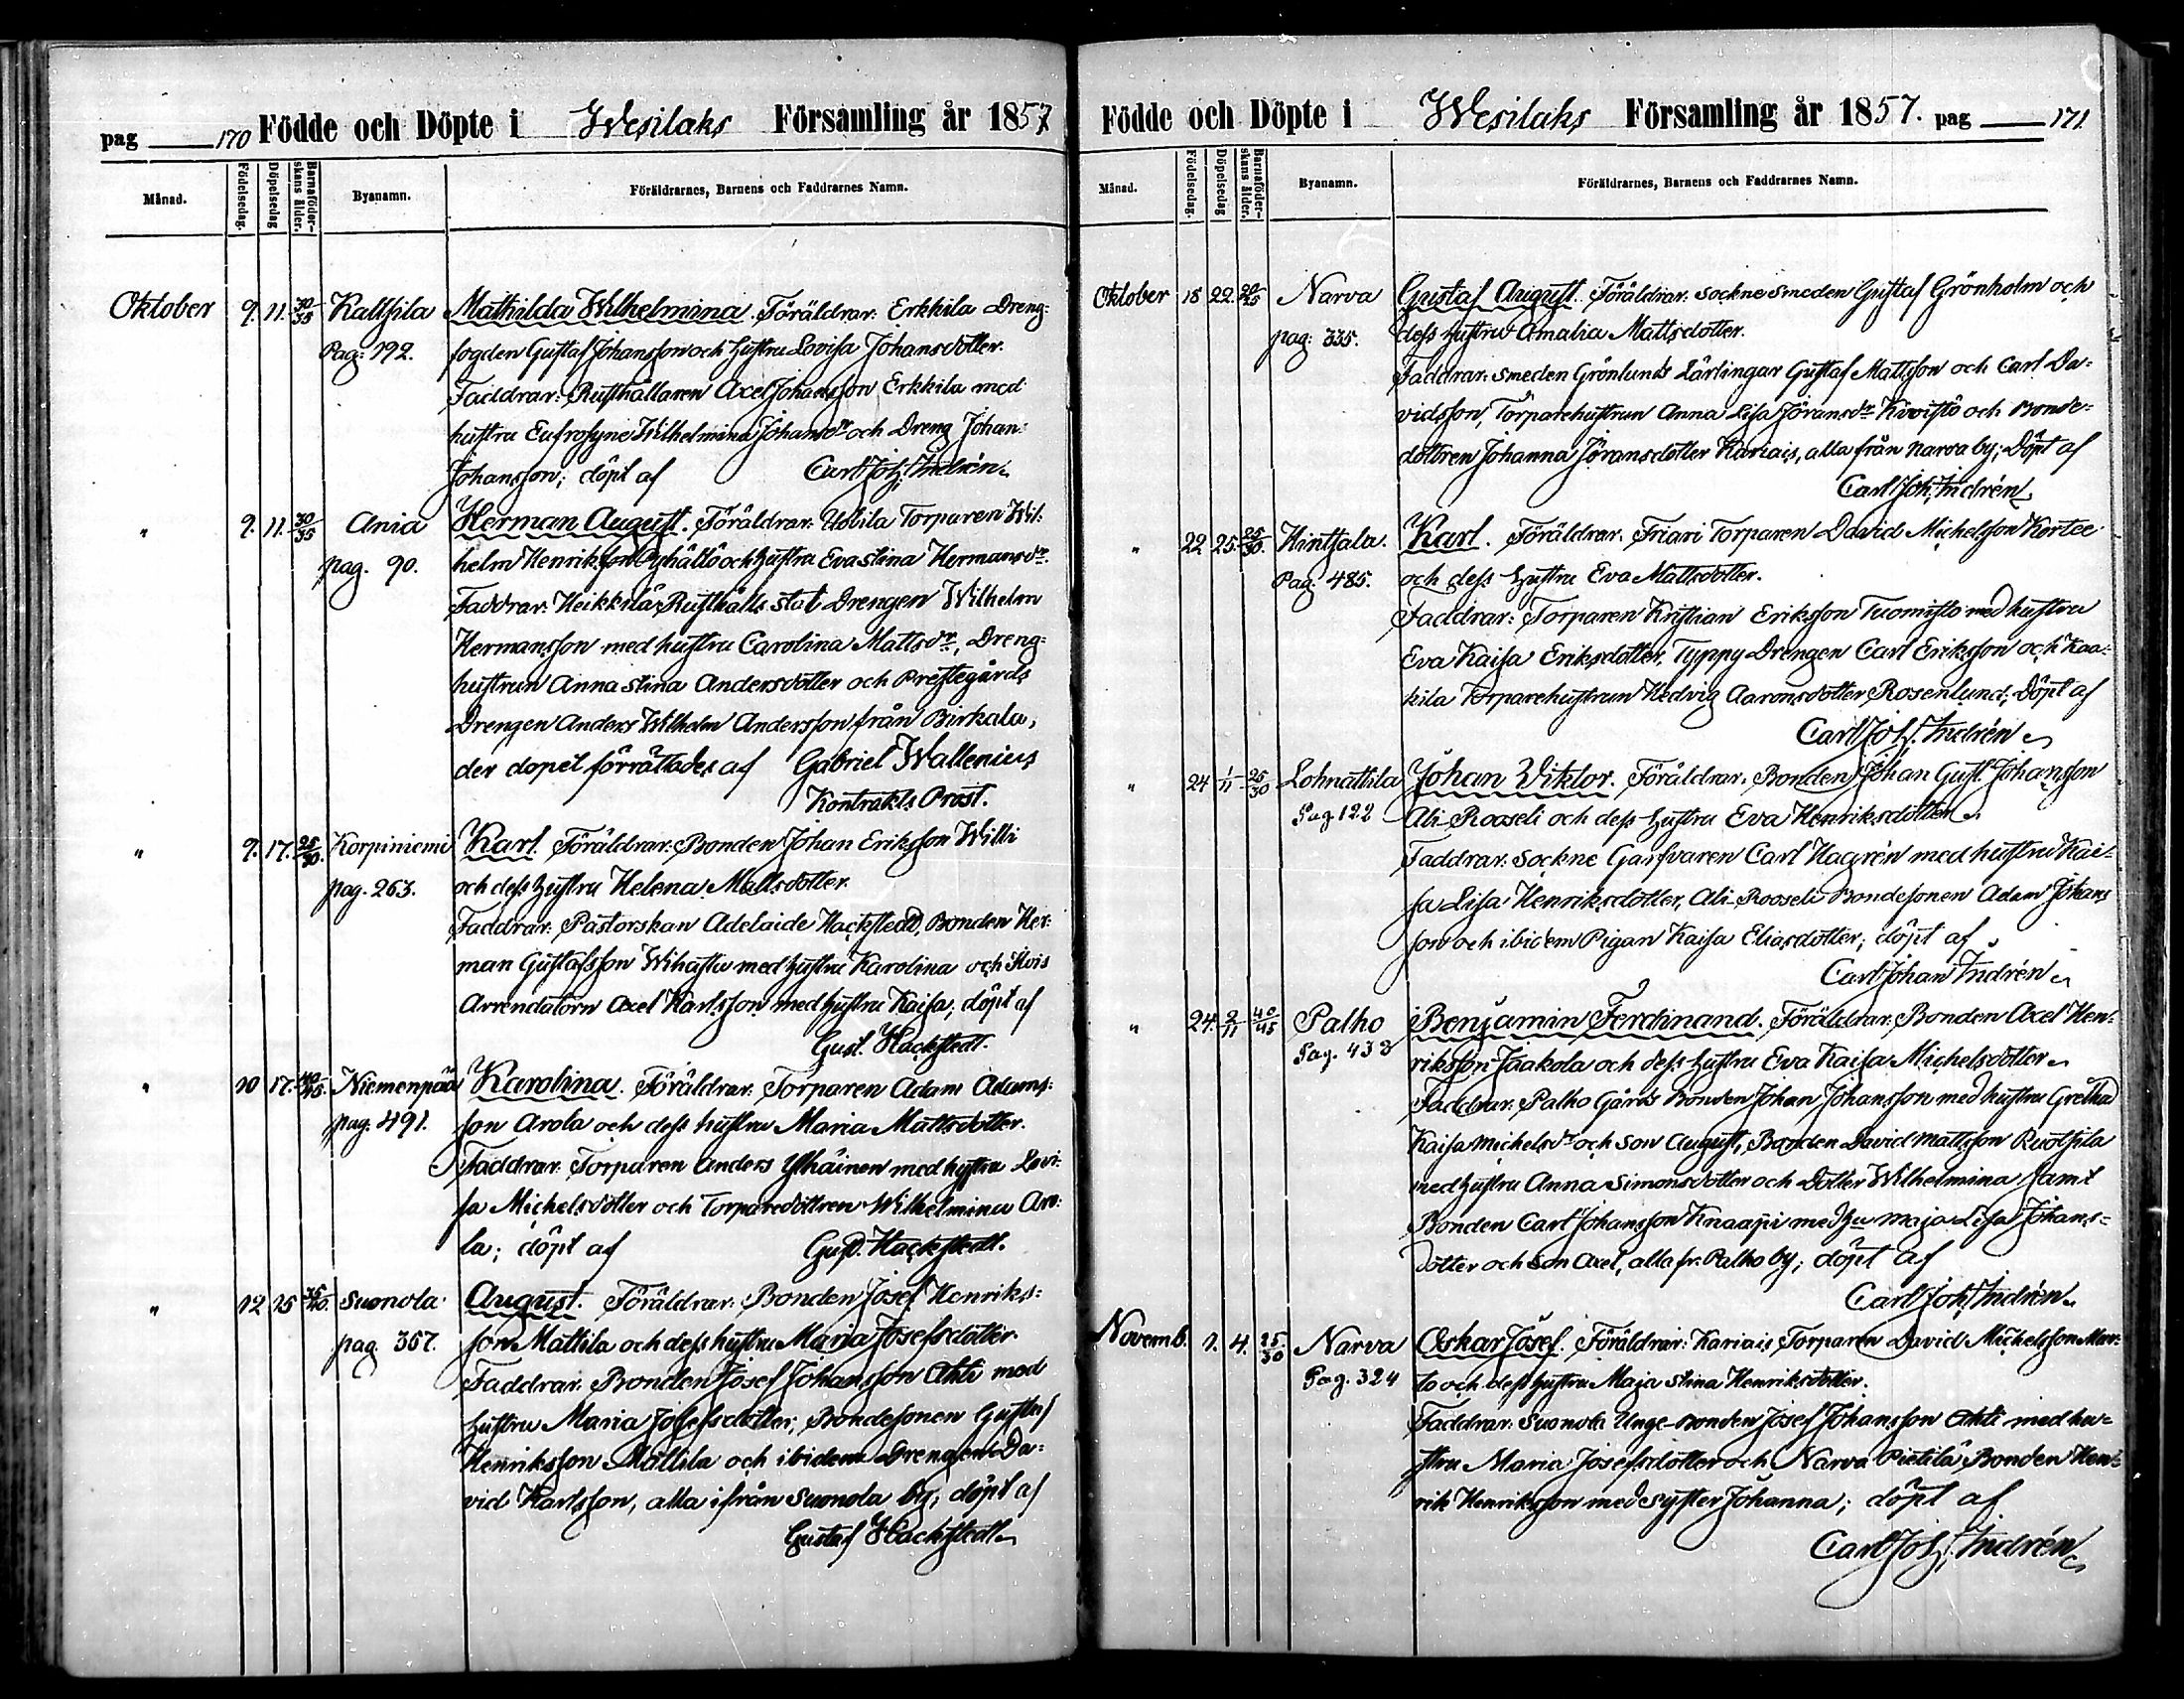 pag 170 Födde och Döpte i Wesilaks Församling år 1857
Månad. Födelsedag. Döpelsedag Barnaföderskans ålder. Byanamn. Föräldrarnes, Barnens och Faddrarnes Namn.
Oktober 9. 11. 30/35 Kaltsila Mathilda Wilhelmina. Föräldrar: Erkkila Dreng-
Pag: 192. fogden Gustaf Johansson och hustru Lovisa Johansdotter.
Faddrar: Rusthållaren Axel Johansson Erkkila med
hustru Eufrosyne Wilhelmina Johansdr och Dreng Johan
Johansson; döpt af Carl Joh. Indrén
" 9. 11. 30/35 Ania Herman August. Föräldrar: Uotila Torparen Wil-
pag. 90. helm Henriksson och hustru Eva Stina Hermansdr
Faddrar: Heikkilä Rusthålls stat Drengen Wilhelm
Hermansson med hustru Carolina Mattsdr, Dreng-
hustrun Anna Stina Andersdotter och Prestegårds
Drengen Anders Wilhelm Andersson från Birkala,
der dopet förrättades af Gabriel Wallenius
Kontrakts Prost.
" 9. 17. 25/30. Korpiniemi Karl. Föräldrar: Bonden Johan Eriksson Willi
pag. 263. och dess hustru Helena Mattsdotter.
Faddrar: Pastorskan Adelaide Hackstedt, Bonden Her-
man Gustafsson med hustru Karolina och
Arrendatorn Axel Karlsson med hustru Kaisa; döpt af
Gust. Hackstedt.
" 10 17. 40/45. Niemenpää Karolina. Föräldrar: Torparen Adam Adams-
pag. 491. son Arola och dess hustru Maria Mattsdotter.
Faddrar: Torparen Anders Ylhäinen med hustru Lovi-
sa Michelsdotter och Torparedottren Wilhelmina Aro-
la; döpt af Gust. Hackstedt.
" 12 15 35/40. Suonola August. Föräldrar: Bonden Josef Henriks-
pag. 357. son Mattila och dess hustru Maria Josefsdotter.
Faddrar: Bonden Josef Johansson Ahti med
hustru Maria Josefsdotter, Bondesonen Gustaf
Henriksson Mattila och ibidem Drengen Da-
vid Karlsson, alla ifrån Suonola by; döpt af
Gustaf Hackstedt
Födde och Döpte i Wesilaks Församling år 1857. pag 171.
Månad. Födelsedag. Döpelsedag Barnaföderskans ålder. Byanamn. Föräldrarnes, Barnens och Faddrarnes Namn.
Oktober 18 22. 20/25 Narva Gustaf August. Föräldrar: Sockne smeden Gustaf Grönholm och
pag: 335. dess hustru Amalia Mattsdotter.
Faddrar: Smeden Grönlunds Lärlingar Gustaf Mattsson och Carl Da-
vidsson, Torparehustrun Anna Lisa Jöransdr Kivistö och Bonde-
dottren Johanna Jöransdotter Kariais, alla från Narva by; Döpt af
Carl Joh. Indrén
" 22 25. 25/30. Hintsala. Karl. Föräldrar: Friari Torparen David Michelsson Kortee
Pag. 485. och dess hustru Eva Mattsdotter.
Faddrar: Torparen Kristian Eriksson Tuomisto med hustru
Eva Kaisa Eriksdotter, Typpy Drengen Carl Eriksson och Kaa-
kila Torparehustrun Hedvig Aaronsdotter Rosenlund; Döpt af
Carl Joh. Indrén
" 24 1/11 25/30 Lohnattila Johan Viktor. Föräldrar: Bonden Johan Gust. Johansson
Pag 122 Ali-Rooseli och dess hustru Eva Henriksdotter
Faddrar: Sockne Garfvaren Carl Hagrén med hustru Kai-
sa Lisa Henriksdotter, Ali-Rooseli Bondesonen Adam Johans
son och ibidem Pigan Kaisa Eliasdotter; döpt af
Carl Johan Indrén
" 24. 2/11 40/45 Palho Benjamin Ferdinand. Föräldrar: Bonden Axel Hen-
Pag. 433 riksson Jaakola och dess hustru Eva Kaisa Michelsdotter
Faddrar: Palho Gårds Bonden Johan Johansson med hustru Gretha
Kaisa Michelsdr och son August, Bonden David Mattsson Ruotsila
med hustru Anna Simonsdotter och Dotter Wilhelmina samt
Bonden Carl Johansson Knaapi med hu Maja Lisa Johans-
dotter och Son Axel, alla fr. Palho by; döpt af
Carl Joh. Indrén
Novemb. 1. 4. 25/30 Narva Oskar Josef. Föräldrar: Kariais Torparen David Michelsson Mar-
Pag. 324 to och dess hustru Maja Stina Henriksdotter.
Faddrar: Suonola Unge-Bonden Josef Johansson Ahti med hu-
stru Maria Josefsdotter och Narva Pietilä Bonden Hen-
rik Henriksson med syster Johanna; döpt af
Carl Joh. Indrén